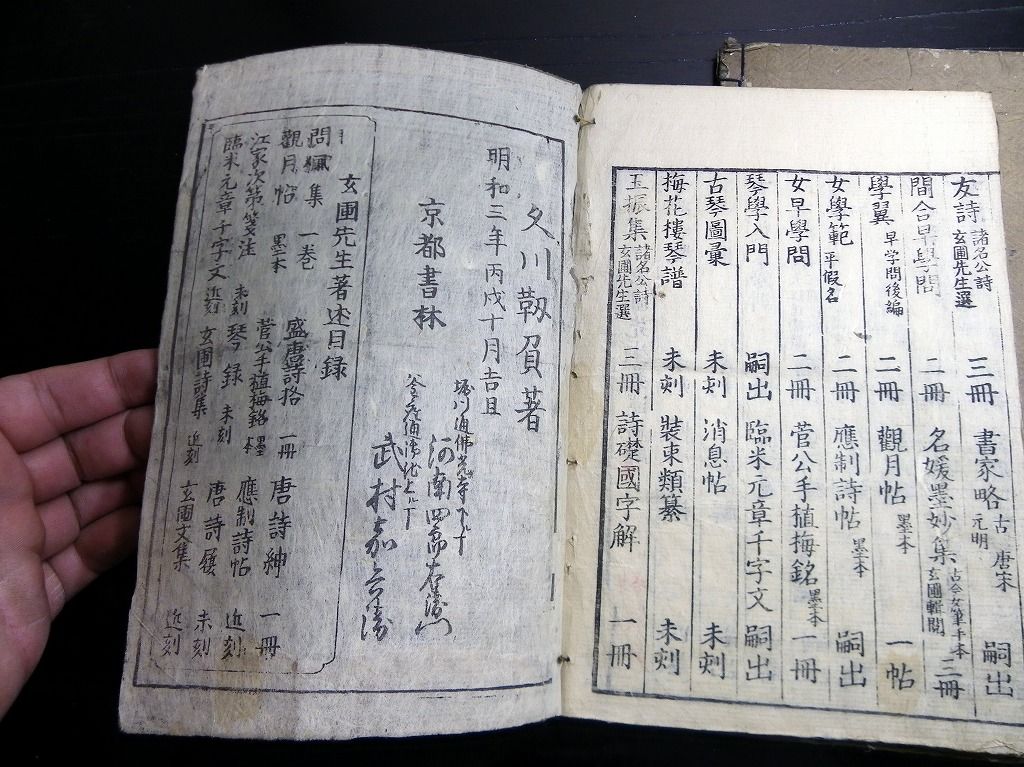 友詩 諸名公詩 玄圃先生選 三冊 書家略 古唐宋元明 嗣出
間合早學問 二冊 名媛墨妙集 古今女筆手本 玄圃輯閲 三冊
學翼 早学問後編 二冊 觀月帖 墨本 一帖
女學範 平假名 二冊 應制詩帖 墨本 嗣出
女早學問 二冊 菅公手植梅銘 墨本 一冊
琴學入門 嗣出 臨米元章千字文 嗣出
古琴圖彙 未刻 消息帖 未刻
梅花樓琴譜 未刻 裝束類纂 未刻
玉振集 諸名公詩 玄圃先生選 三冊 詩礎國字解 一冊
夕川
著
明和三年丙戌十月吉且
京都書林
堀川通佛光寺下ル丁
河南四郎右衛門
武村嘉兵衛
玄圃先生著述目録
問
集 一卷 盛唐詩格 一冊 唐詩紳 一冊
觀月帖 墨本 菅公手植梅銘 墨本 應制詩帖 近刻
江家次第箋注 未刻 琴録 未刻 唐詩
未刻
臨米元章千字文 近刻 玄圃詩集 近刻 玄圃文集 近刻